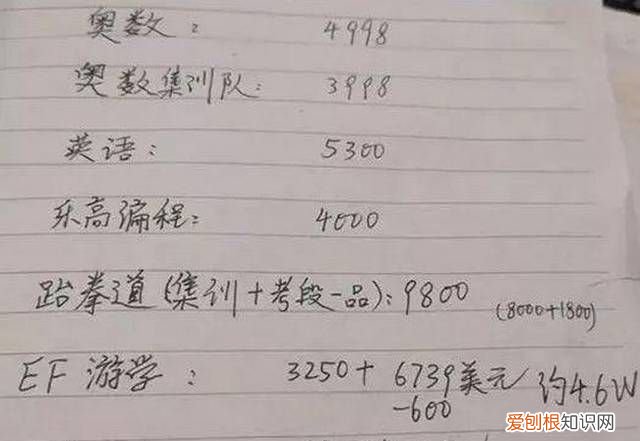 奥数： 4998
奥数集训队： 3998
英语： 5300
乐高编程： 4000
跆拳道(集训+考段一品)：9800 (8000+1800)
EF游学： 3250+ 6739美元 约4.6W
-600
爱刨根知识网